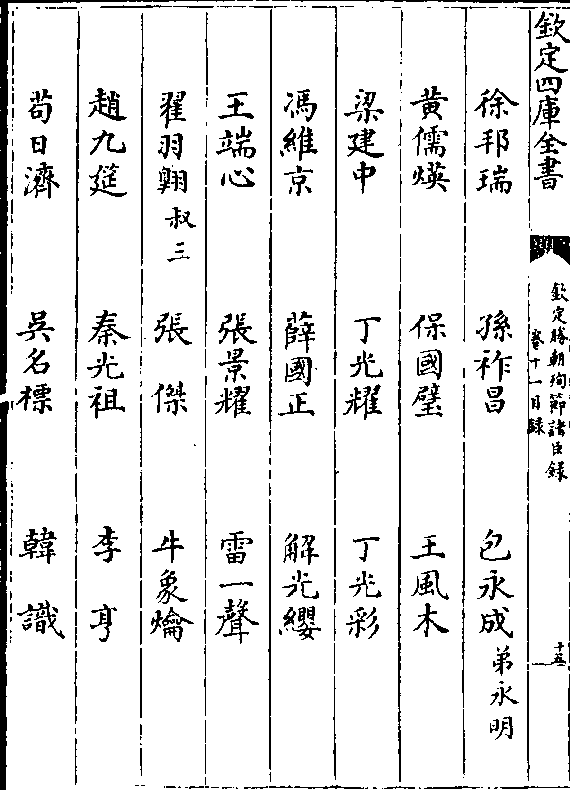 欽定四庫全書
欽定勝朝殉節諸臣録
卷十一目録
十五
徐邦瑞 孫祚昌 包永成 弟永明
黄儒煐 保國璧 王風木
梁建中 丁光耀 丁光彩
馮維京 薛國正 解光纓
王端心 張景耀 雷一聲
翟羽翺 叔三 張傑 牛象爚
趙九莚 秦光祖 李亨
苟日濟 吳名標 韓識